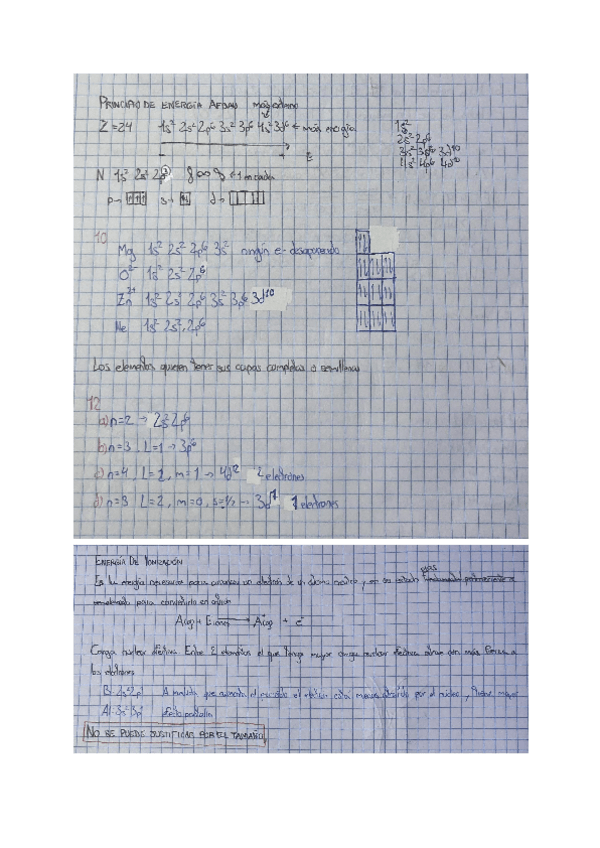 PRINCIPIO DE ENERGÍA AFBAU magnetismo
Z=24 1s² 2s² 2p⁶ 3s² 3p⁶ 4s² 3d⁶ ← más energía
1s²
2s² 2p⁶
3s² 3p⁶ 3d¹⁰
4s² 4p⁶ 4d¹⁰
- + E
N 1s² 2s² 2p³
p→ s→ d→
10
Mg 1s² 2s² 2p⁶ 3s² ningún e- desaparendo
O²⁻ 1s² 2s² 2p⁶
Zn²⁺ 1s² 2s² 2p⁶ 3s² 3p⁶ 3d¹⁰
Ne 1s² 2s², 2p⁶
Los elementos quieren tener sus capas completas o semillenas
12
a) n=2 → 2s² 2p⁶
b) n=3, L=1 → 3p⁶
c) n=4, L=2, m=1 → 4d² 2 electrones
d) n=3 L=2, m=0, s=½ → 3d¹ 1 electrones
ENERGÍA DE IONIZACIÓN
Es la energía necesaria para arrancar un electrón de un átomo neutro y en su estado gas
para convertirlo en catión
A(g) + E → A⁺(g) + e⁻
Carga nuclear efectiva. Entre 2 elementos el que tenga mayor carga nuclear efectiva atrae con más fuerza a
los electrones
B: 2s² 2p¹ A medida que aumenta el el está menos atraído por el núcleo y tiene mayor
Al: 3s² 3p¹ efecto pantalla
NO SE PUEDE JUSTIFICAR POR EL TAMAÑO